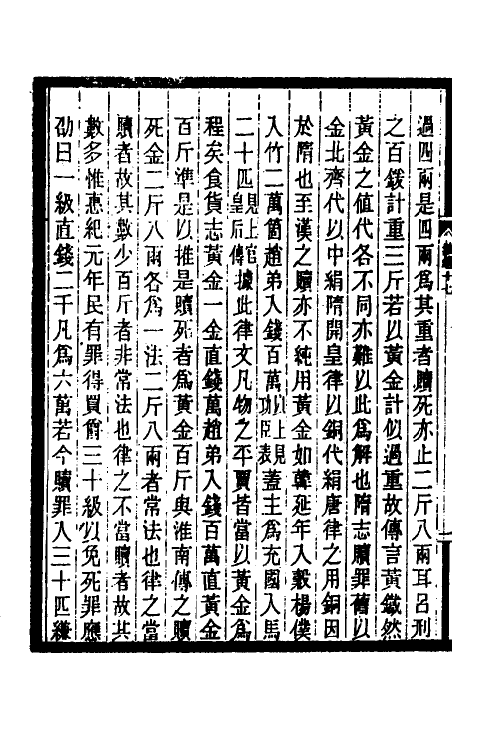 過四兩是四兩爲其重者贖死亦止二斤八兩耳呂刑
之百鍰計重三斤若以黃金計似過重故傳言黃鐵然
黃金之値代各不同亦難以此爲解也隋志贖罪舊以
金北齊代以中絹隋開皇律以銅代絹唐律之用銅因
於隋也至漢之贖亦不純用黃金如韓延年入穀楊僕
入竹二萬箇趙弟入錢百萬以上見功臣表蓋主爲充國入馬
二十匹見上官皇后傳據此律文凡物之平賈皆當以黃金爲
程矣食貨志黃金一金直錢萬趙弟入錢百萬直黃金
百斤準是以推是贖死者爲黃金百斤與淮南傳之贖
死金二斤八兩各爲一法二斤八兩者常法也律之當
贖者故其數少百斤者非常法也律之不當贖者故其
數多惟惠紀元年民有罪得買爵三十級以免死罪應
劭曰一級直錢二千凡爲六萬若今贖罪入三十匹縑